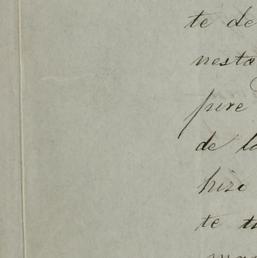 te de
nesta
pire
de la
hizo
te tu